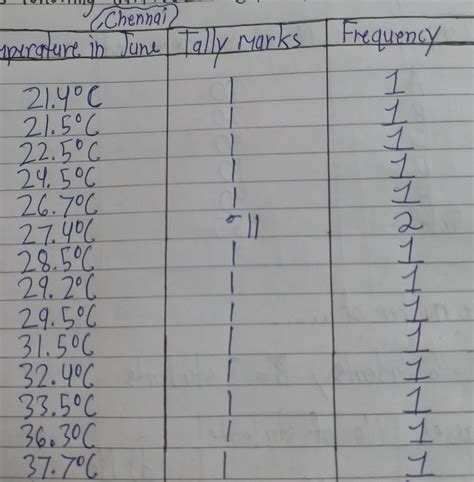 (Chennai)
Temperature in June Tally marks Frequency
21.4°C | 1
21.5°C | 1
22.5°C | 1
24.5°C | 1
26.7°C | 1
27.4°C || 2
28.5°C | 1
29.2°C | 1
29.5°C | 1
31.5°C | 1
32.4°C | 1
33.5°C | 1
36.3°C | 1
37.7°C | 1